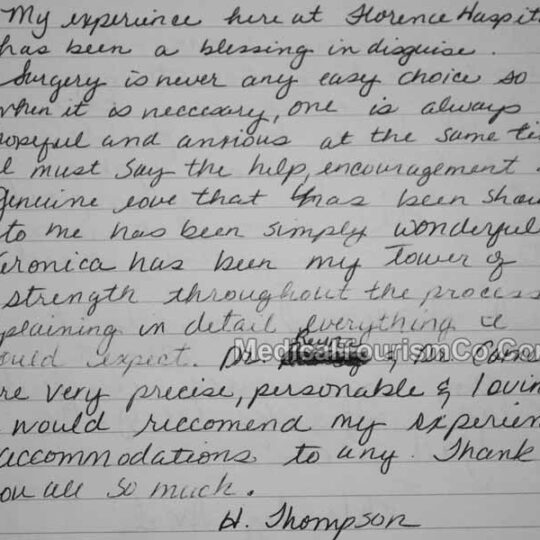 My experience here at Florence Hospit
has been a blessing in disguise.
Surgery is never any easy choice so
when it is neccesary, one is always
opeful and anxious at the same ti
I must say the help, encouragement
Genuine love that has been show
to me has been simply wonderful
eronica has been my tower of
strength throughout the process
plaining in detail everything I
ould expect. Dr. & Dr.
MedicalTourismCo.Com
re very precise, personable & lovin
would reccomend my experien
accommodations to any. Thank
ou all so much.
H. Thompson